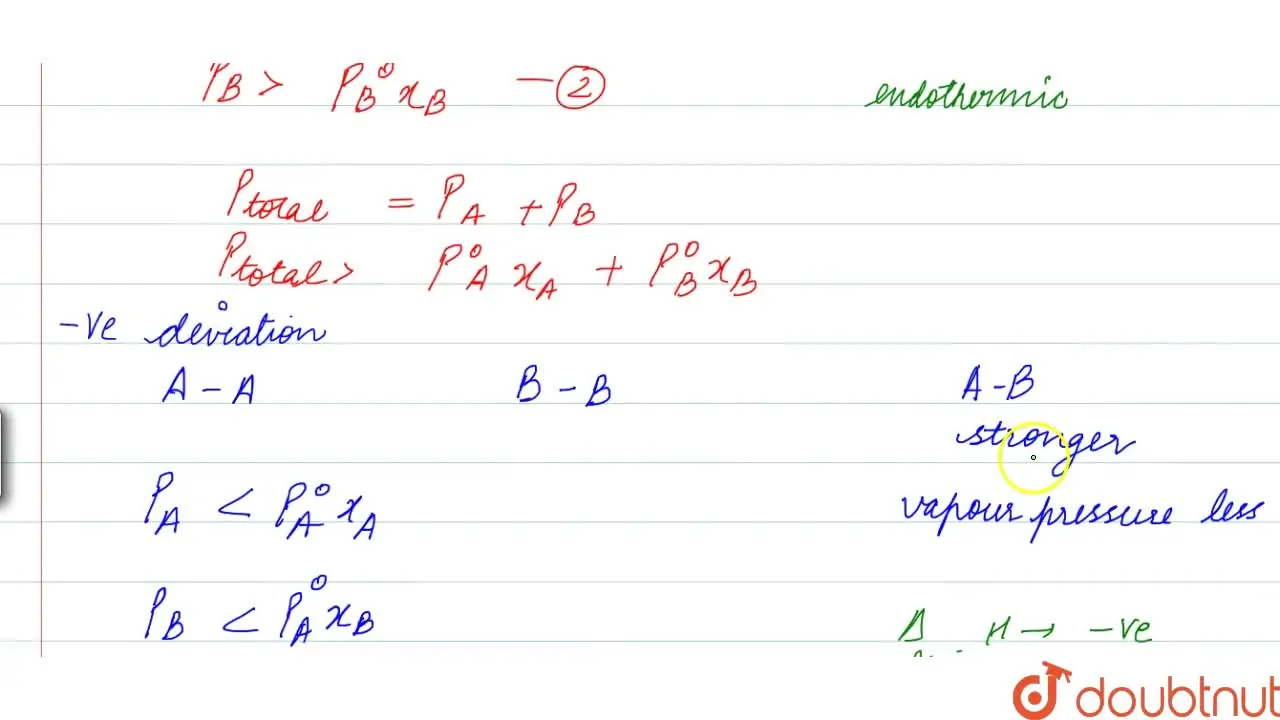 P_B > P_B^0 x_B — ②
endothermic
P_total = P_A + P_B
P_total > P_A^0 x_A + P_B^0 x_B
-ve deviation
A - A B - B A - B
stronger
P_A < P_A^0 x_A
vapour pressure less
P_B < P_A^0 x_B
Δ H → -ve
doubtnut